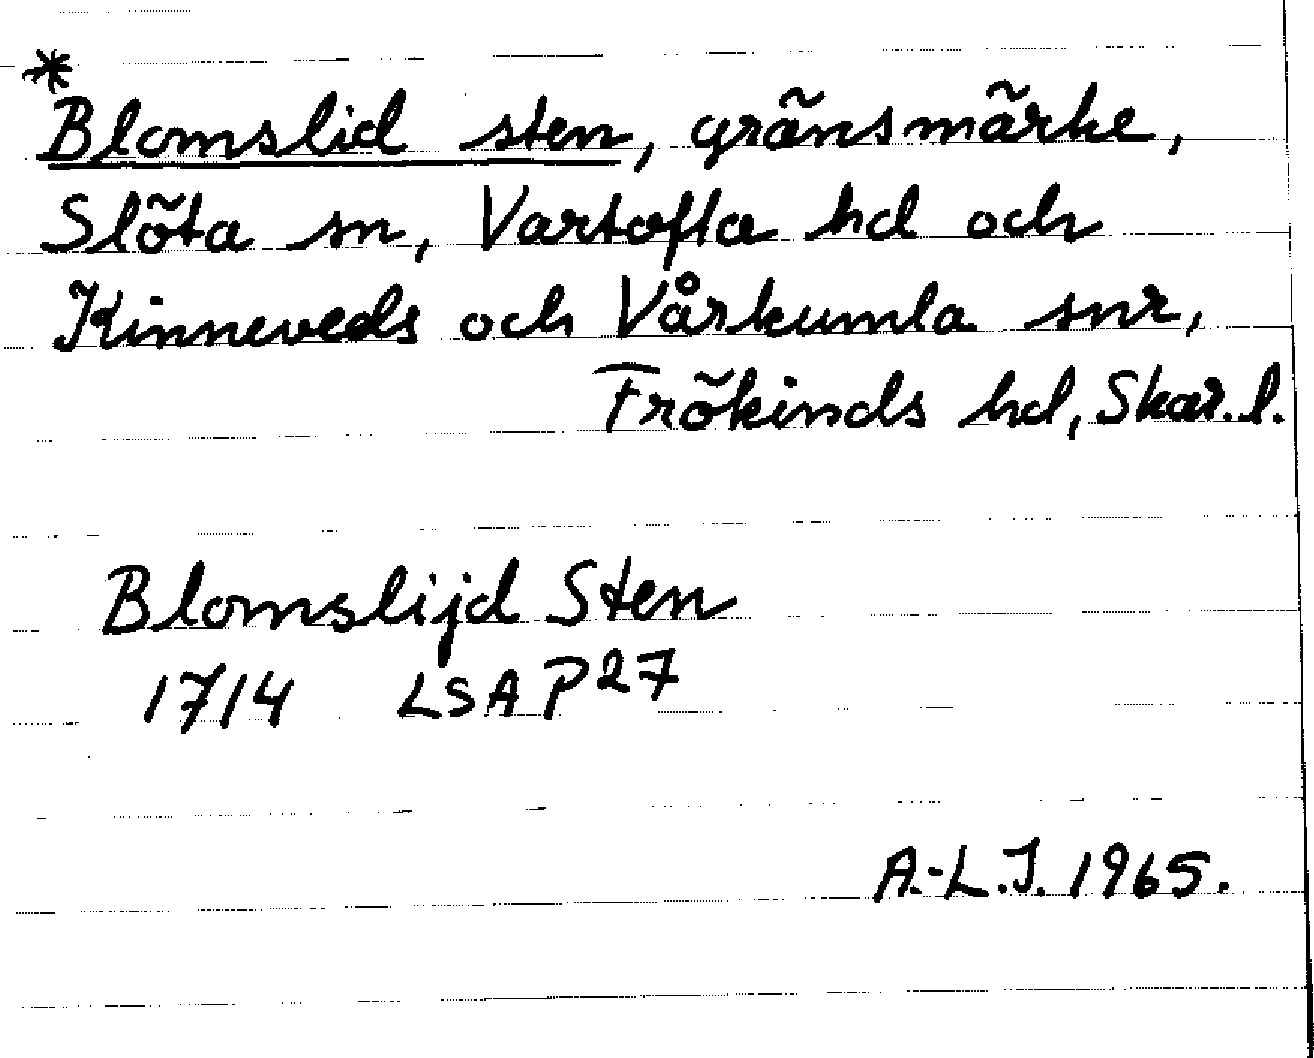 *
Blomslid sten, gränsmärke,
Slöta sn, Vartofta hd och
Kinneveds och Vårkumla snr,
Frökinds hd, Skar. l.
Blomslijd Sten
1714 LSA P27
A.-L.J. 1965.